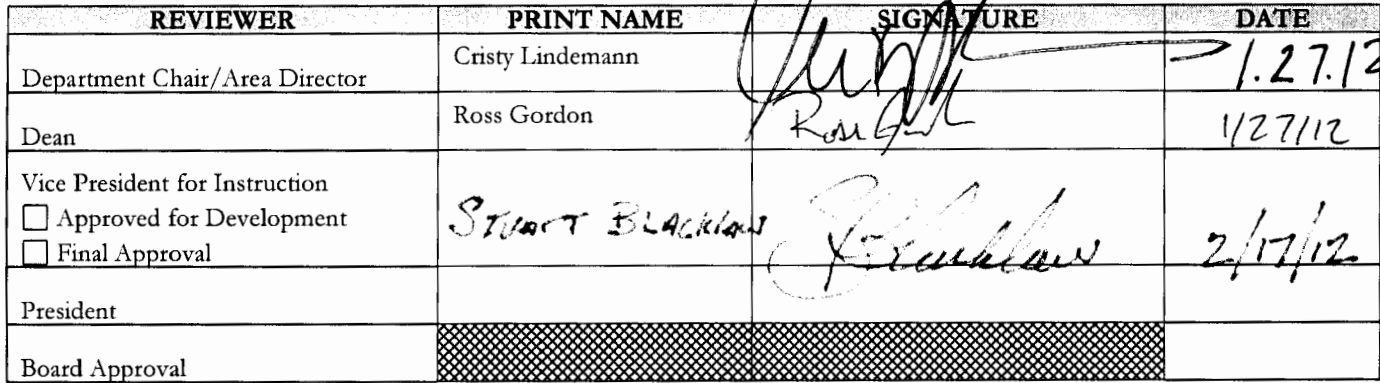 REVIEWER PRINT NAME SIGNATURE DATE
Department Chair/Area Director Cristy Lindemann 1.27.12
Dean Ross Gordon Ross 1/27/12
Vice President for Instruction
Approved for Development STUART BLACKLAW
Final Approval 2/17/12
President
Board Approval